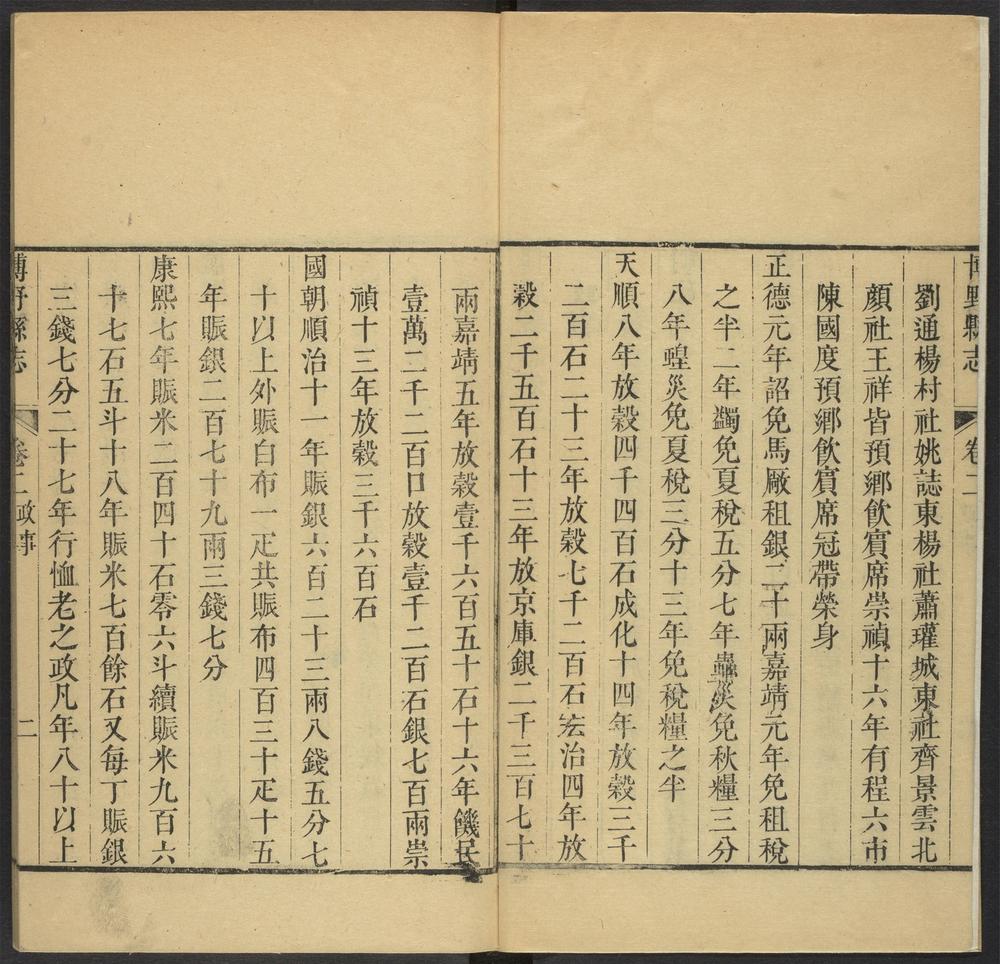 博野縣志 卷二
劉通楊村社姚誌東楊社蕭瓘城東社齊景雲北
顏社王祥皆預鄉飲賓席崇禎十六年有程六市
陳國度預鄉飲賓席冠帶榮身
正德元年詔免馬厰租銀二十兩嘉靖元年免租稅
之半二年蠲免夏稅五分七年蟲災免秋糧三分
八年蝗災免夏稅三分十三年免稅糧之半
天順八年放穀四千四百石成化十四年放穀三千
二百石二十三年放穀七千二百石宏治四年放
穀二千五百石十三年放京庫銀二千三百七十
兩嘉靖五年放穀壹千六百五十石十六年饑民
壹萬二千二百口放穀壹千二百石銀七百兩崇
禎十三年放穀三千六百石
國朝順治十一年賑銀六百二十三兩八錢五分七
十以上外賑白布一疋共賑布四百三十疋十五
年賑銀二百七十九兩三錢七分
康熙七年賑米二百四十石零六斗續賑米九百六
十七石五斗十八年賑米七百餘石又每丁賑銀
三錢七分二十七年行恤老之政凡年八十以上
博野縣志 卷二 政事 二